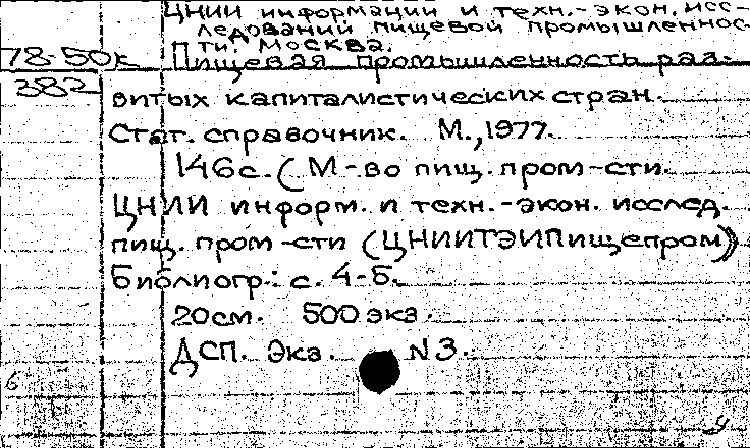 ЦНИИ информации и техн.-экон. исс-
ледований пищевой промышленнос-
ти. Москва.
78-50к Пищевая промышленность раз-
382 витых капиталистических стран.
Стат. справочник. М., 1977.
146с. (М-во пищ. пром-сти.
ЦНИИ информ. и техн.-экон. исслед.
пищ. пром-сти (ЦНИИТЭИПищепром))
Библиогр.: с. 4-6.
20см. 500 экз.
ДСП. Экз. N 3.
6
9